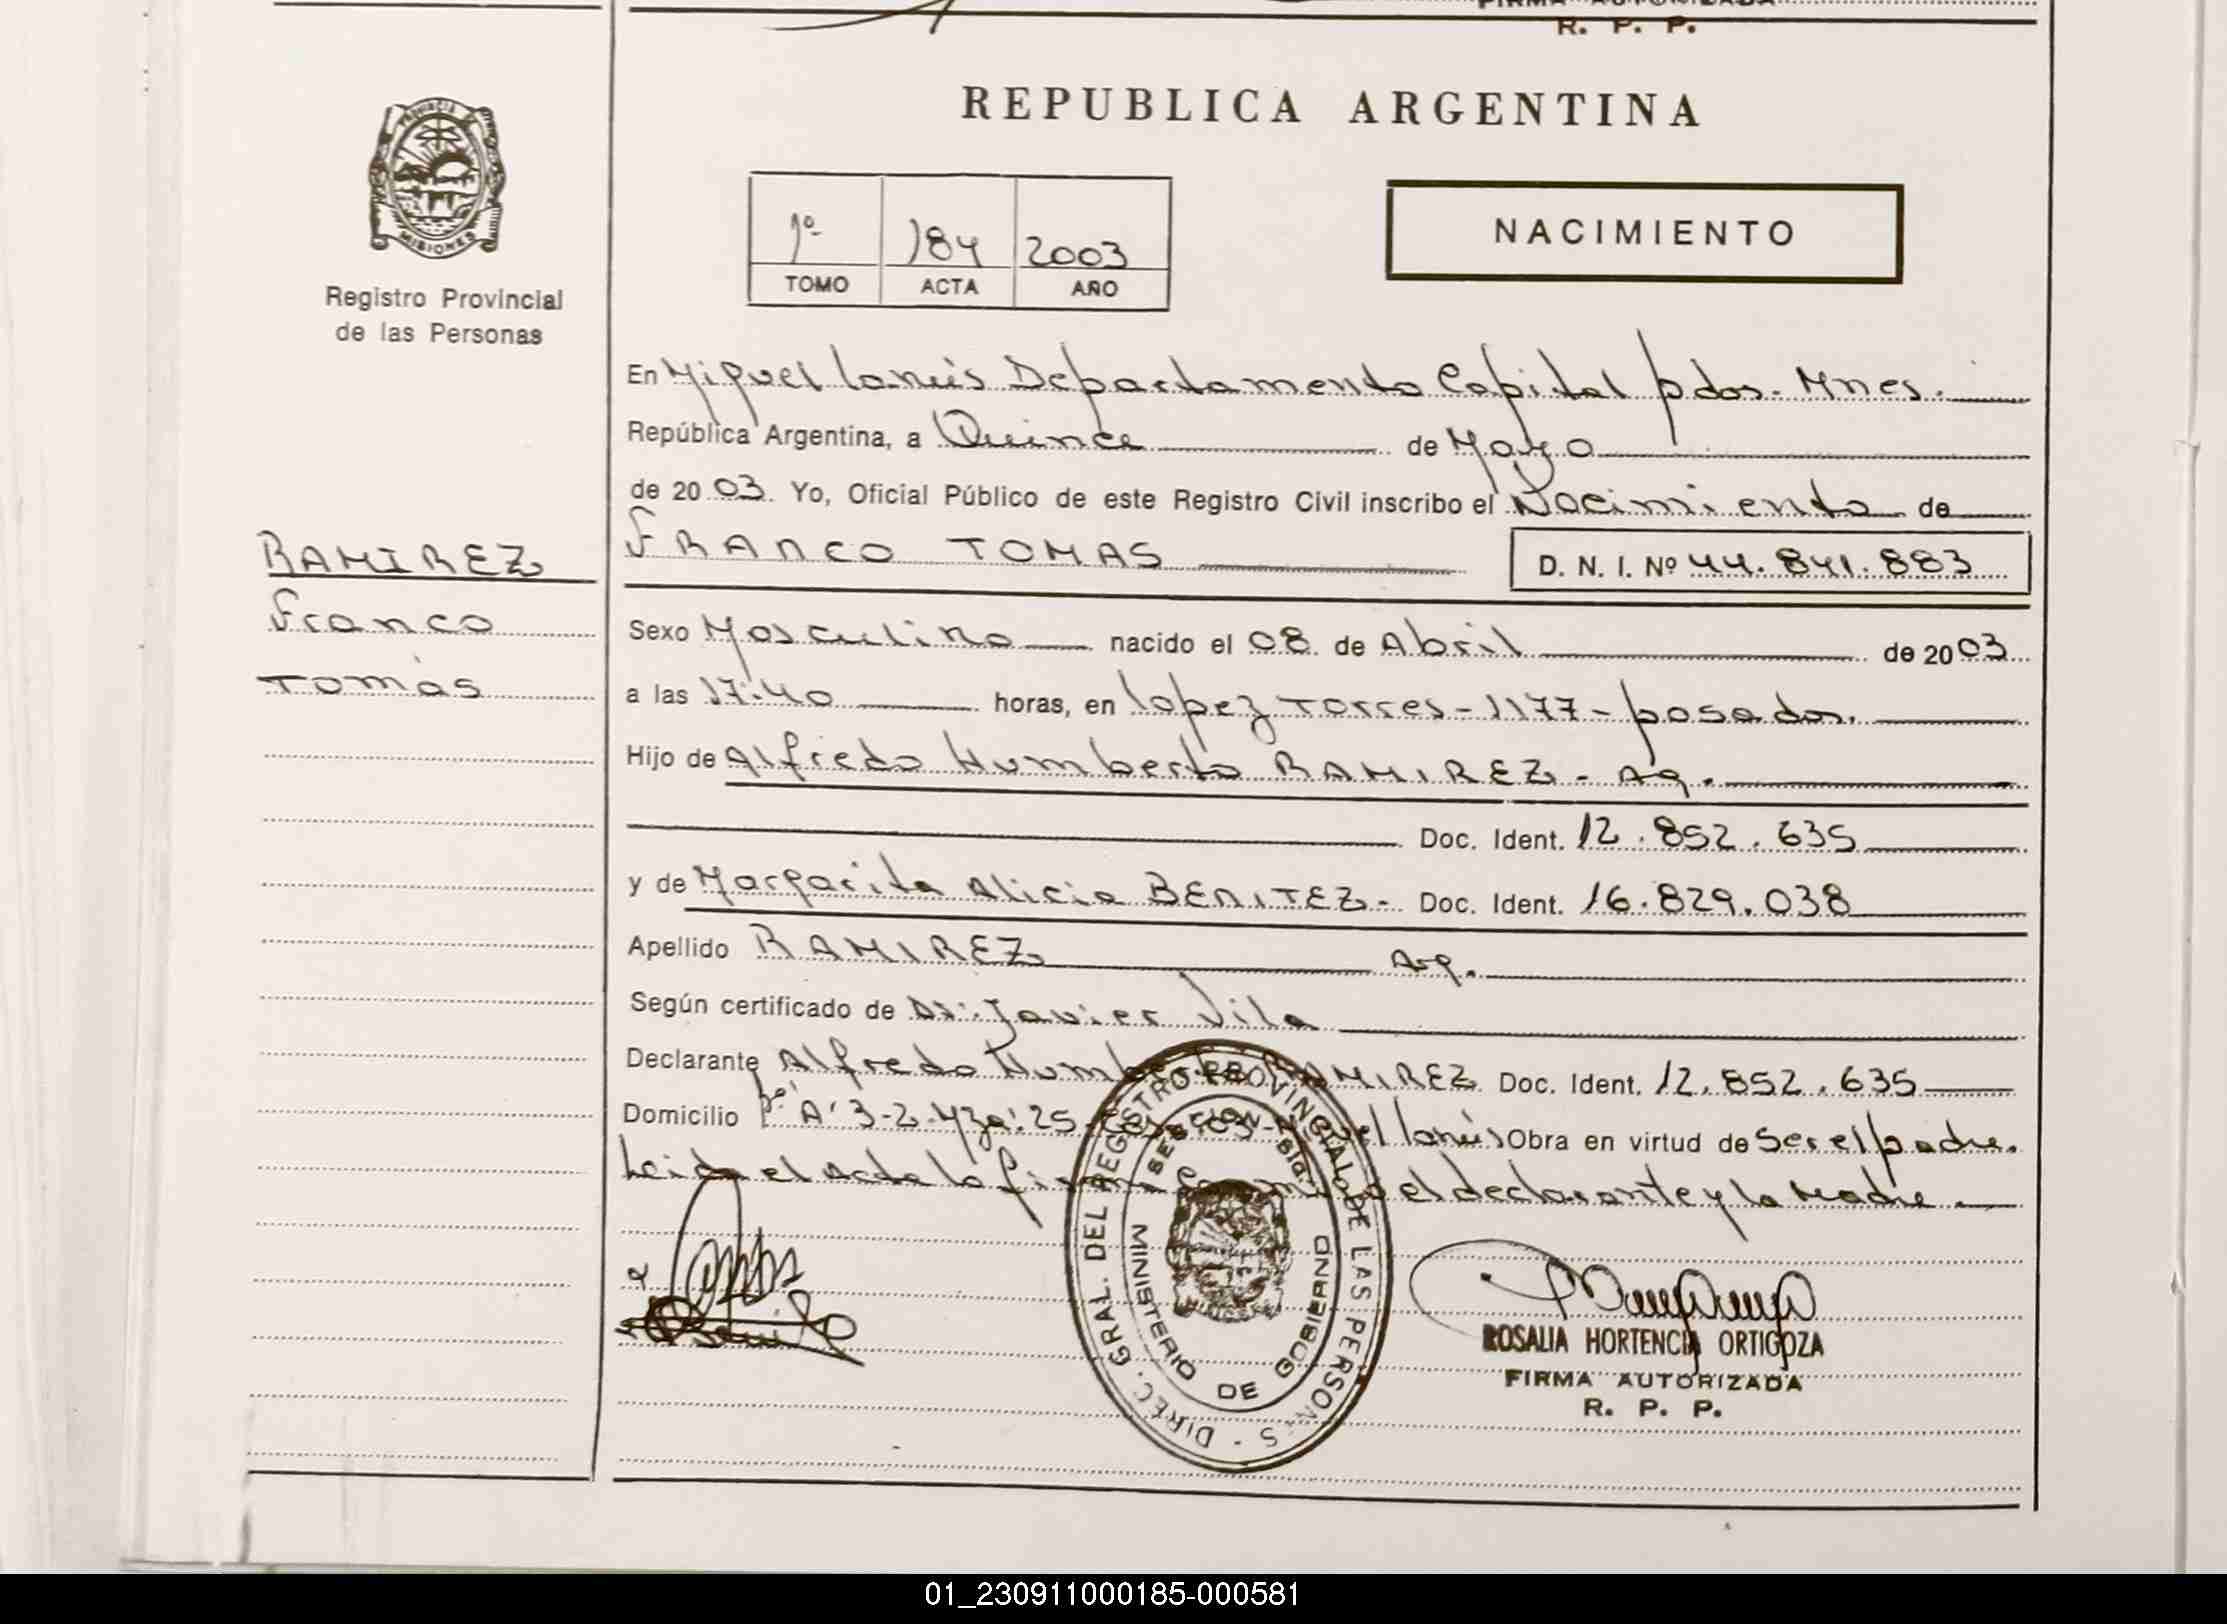 FIRMA AUTORIZADA
R. P. P.
PROVINCIA DE
MISIONES
Registro Provincial
de las Personas
REPUBLICA ARGENTINA
1º 184 2003
TOMO ACTA AÑO
NACIMIENTO
En Miguel Lanús Departamento Capital Pdas. Mnes.
República Argentina, a Quince de Mayo
de 2003. Yo, Oficial Público de este Registro Civil inscribo el Nacimiento de
FRANCO TOMAS D. N. I. Nº 44.841.883
RAMIREZ
Franco
Tomás
Sexo Masculino nacido el 08 de Abril de 2003
a las 17:40 horas, en Lopez Torres - 1177 - Posadas.
Hijo de Alfredo Humberto RAMIREZ - Ag.
Doc. Ident. 12.852.635
y de Margarita Alicia BENITEZ - Doc. Ident. 16.829.038
Apellido RAMIREZ Arg.
Según certificado de Dr: Javier Vila
Declarante Alfredo Humberto RAMIREZ Doc. Ident. 12.852.635
Domicilio "A" 3-2-Mza: 25 Miguel Lanús Obra en virtud de Ser el padre.
Leida el Acta la firma conmigo el declarante y la Madre
DIREC. GRAL. DEL REGISTRO PROVINCIAL DE LAS PERSONAS
MINISTERIO DE GOBIERNO
MISIONES
ROSALIA HORTENCIA ORTIGOZA
FIRMA AUTORIZADA
R. P. P.
01_230911000185-000581